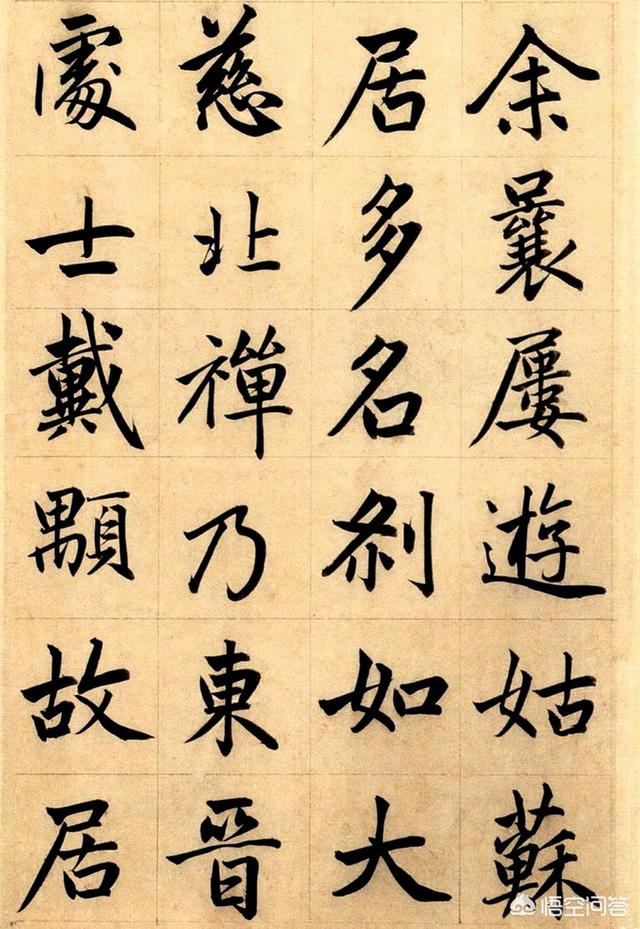 余曩屢遊姑蘇
居多名剎如大
慈北禪乃東晉
處士戴顒故居
悟空问答